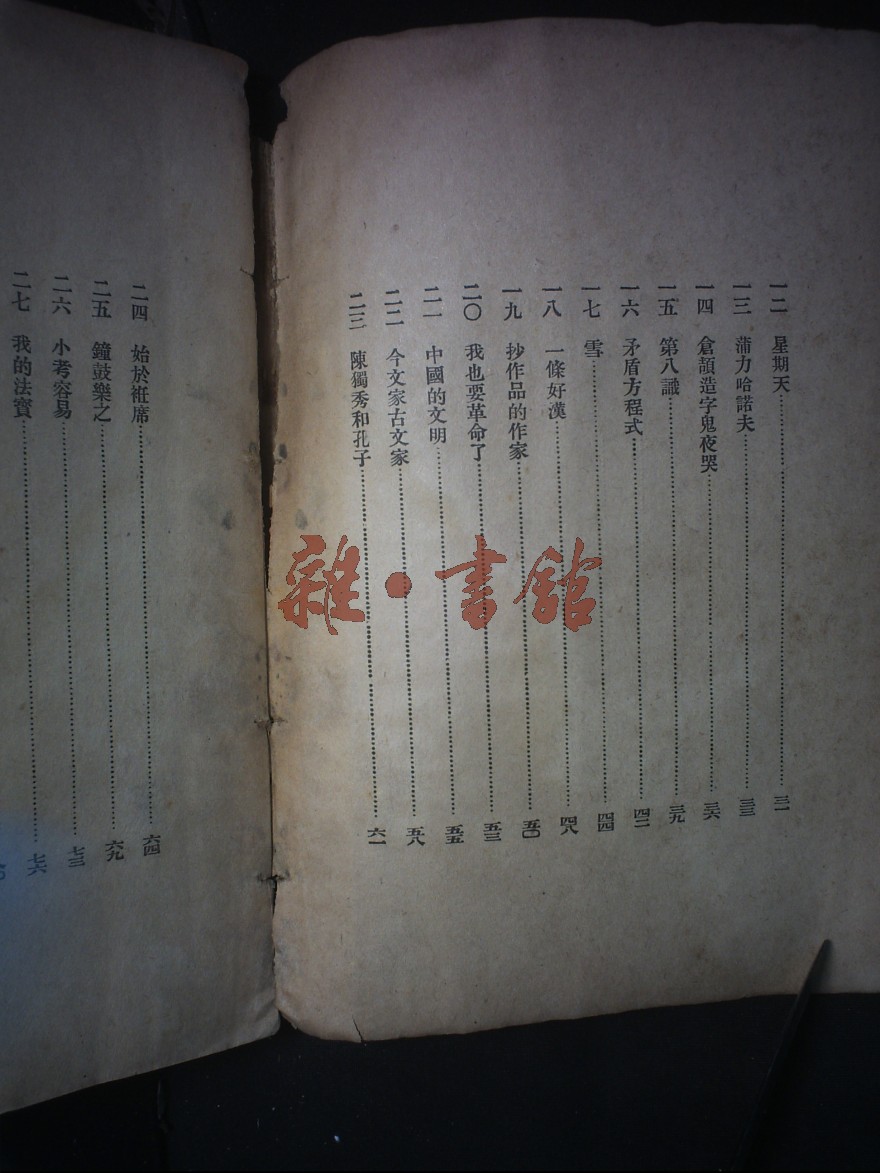 一二 星期天 三一
一三 蒲力哈諾夫 三三
一四 倉頡造字鬼夜哭 三六
一五 第八識 三九
一六 矛盾方程式 四二
一七 雪 四四
一八 一條好漢 四八
一九 抄作品的作家 五〇
二〇 我也要革命了 五三
二一 中國的文明 五五
二二 今文家古文家 五八
二三 陳獨秀和孔子 六一
二四 始於袵席 六四
二五 鐘鼓樂之 六九
二六 小考容易 七三
二七 我的法寶 七六
雜·書館